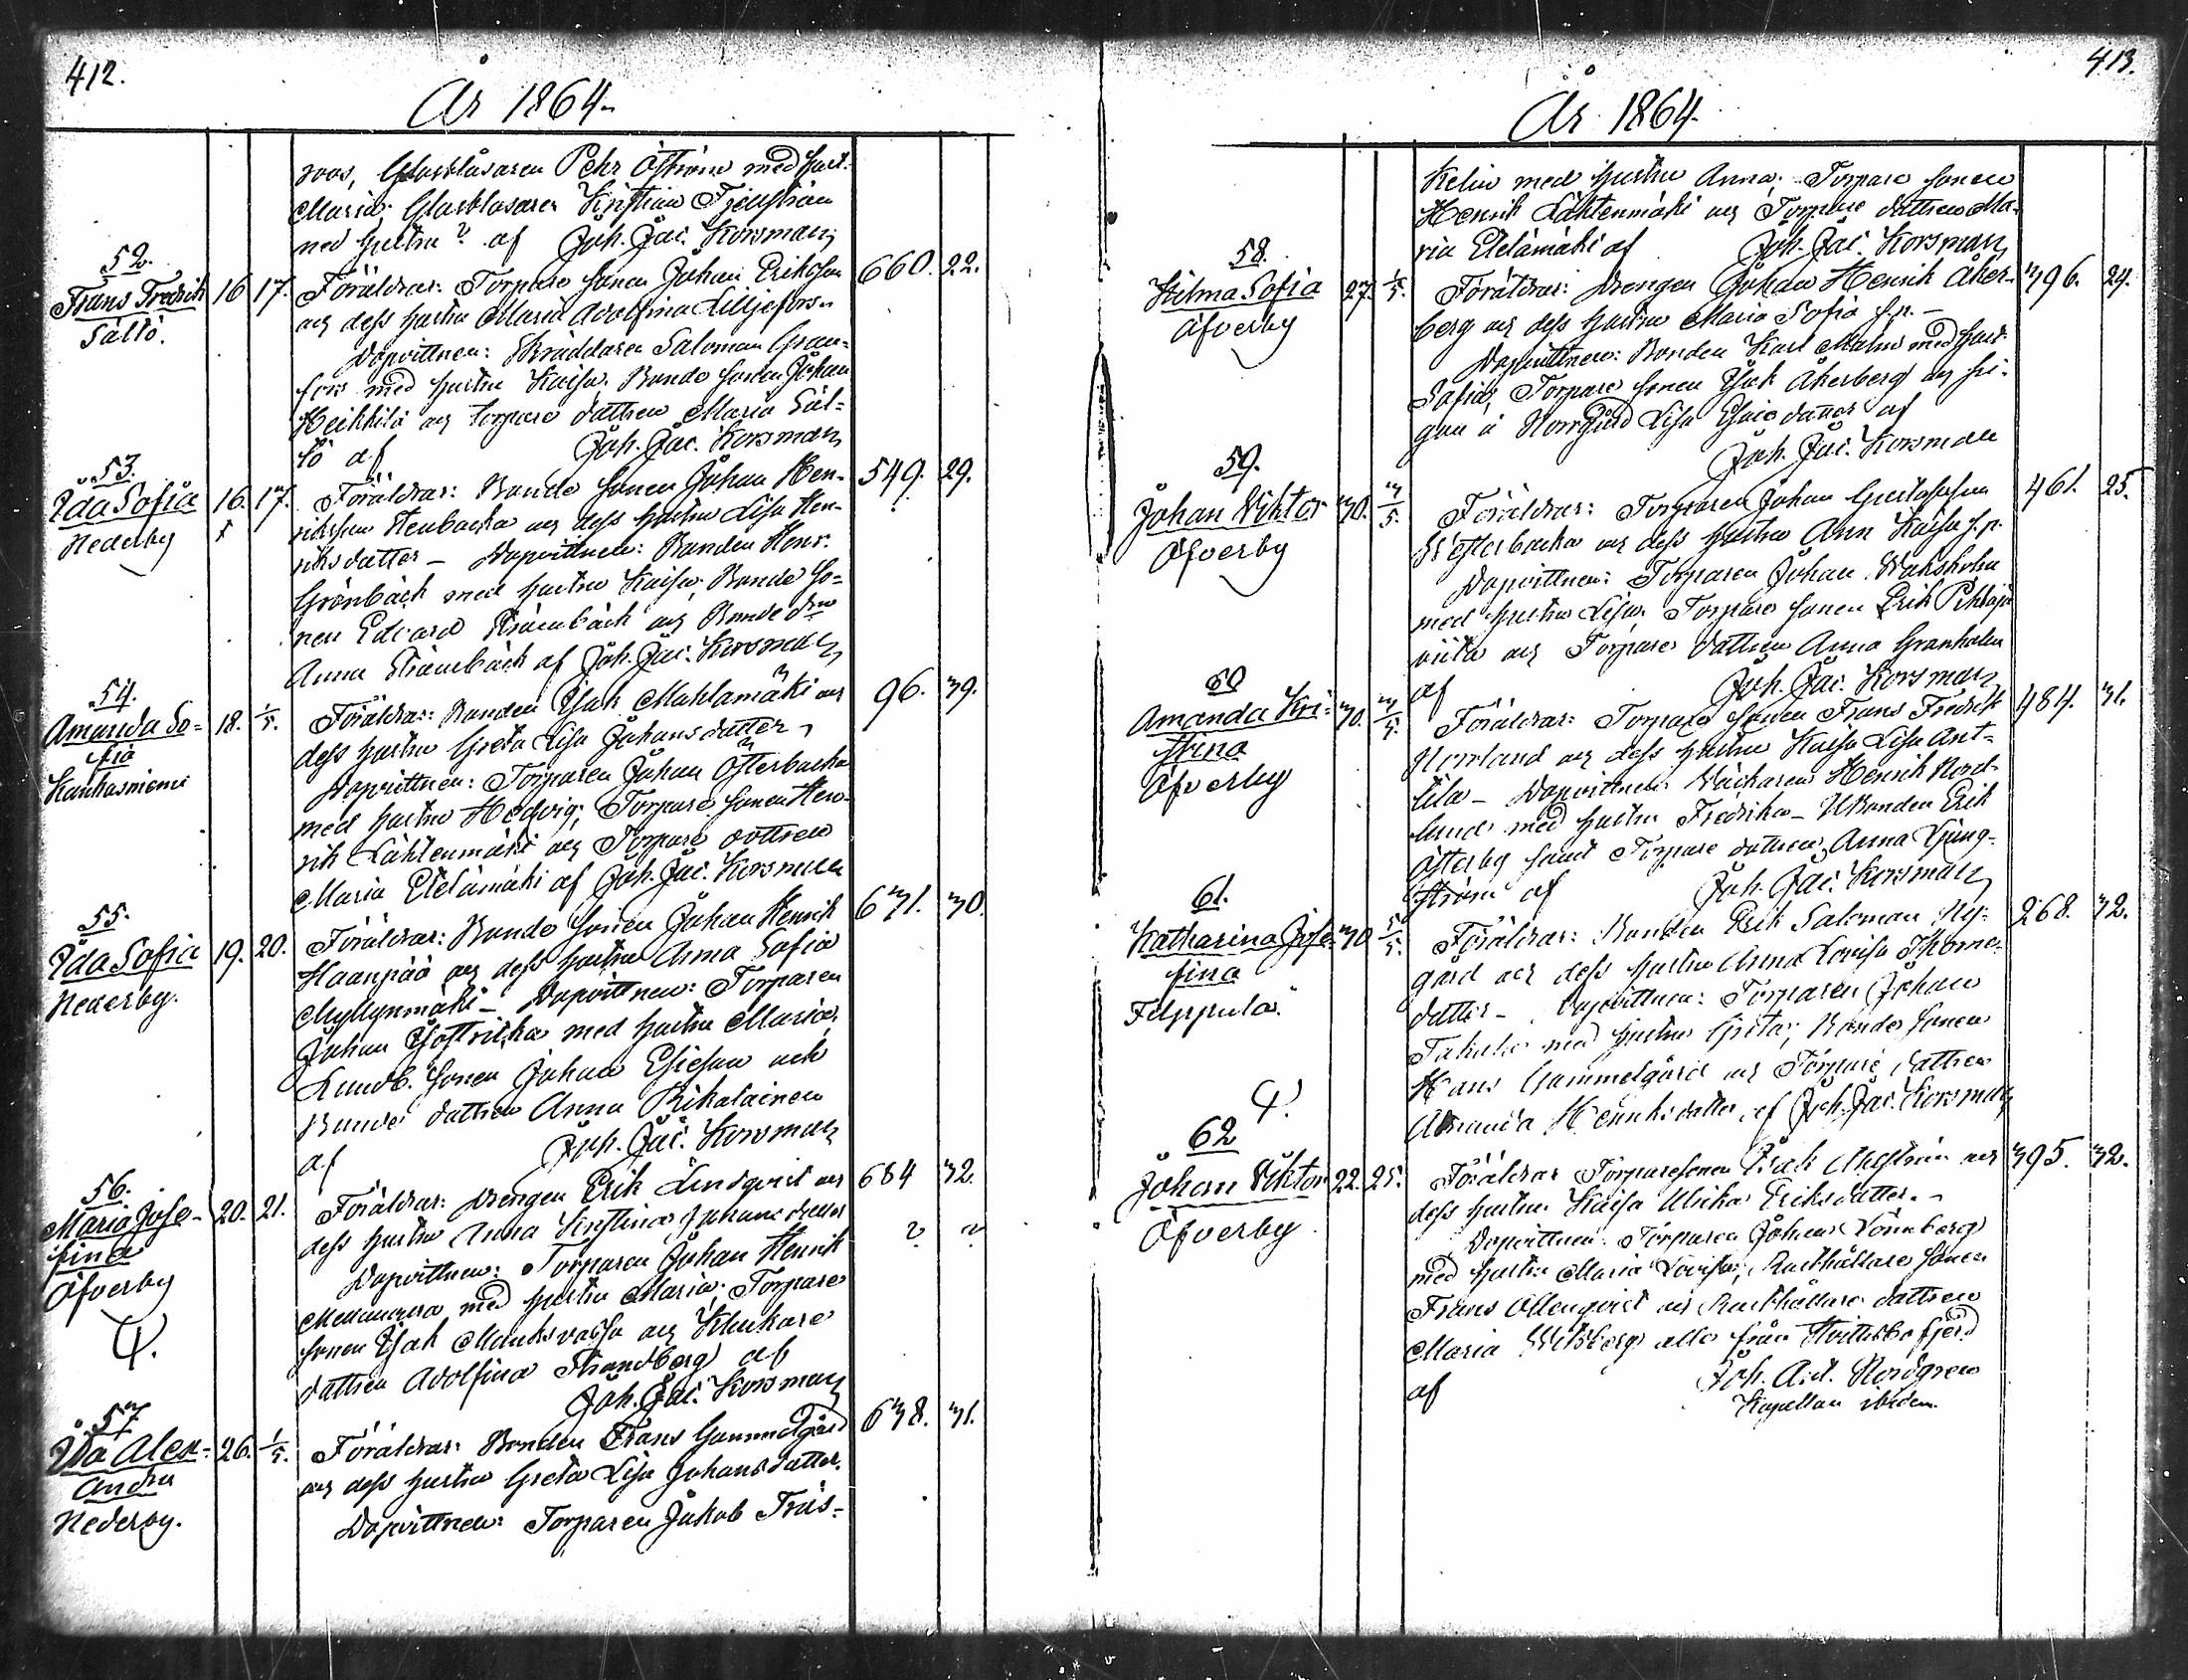 412.
År 1864.
roos, Glasblåsaren Pehr Öström med hust.
Maria; Glasblåsaren Kristian
med hustru ? af Joh. Jac. Korsman
52.
Frans Fredrik
Saltö.
16 17.
Föräldrar: Torpare sonen Johan Eriksson
och dess hustru Maria Adolfina Liljefors.
Dopvittnen: Skräddaren Saloman Gran-
fors med hustru Kaisa. Bonde sonen Johan
Heikkilä och torpare dattren Maria Säl-
tö af Joh. Jac. Korsman
660. 22.
53.
Ida Sofia
Nederby
16. 17.
Föräldrar: Bonde sonen Johan Hen-
riksson Stenbacka och dess hustru Lisa Hen-
riksdatter – Dopvittnen: Bonden Henr.
Grönbäck med hustru Kaisa; Bonde So-
nen Edvard och Bonde drn
Anna af Joh. Jac. Korsman
549. 29.
54.
Amanda So-
fia
Kankasniemi
18. 1/5.
Föräldrar: Bonden Isak Mahlamäki och
dess hustru Greta Lisa Johansdatter,
Dopvittnen: Torparen Johan Österbacka
med hustru Hedvig; Torpare sonen Hen-
rik Lähtenmäki och Torpare dottren
Maria Etelämäki af Joh. Jac. Korsman
96. 39.
55.
Ida Sofia
Nederby.
19. 20.
Föräldrar: Bonde sonen Johan Henrik
Haanpää och dess hustru Anna Sofia
Myllymäki – Dopvittnen: Torparen
Johan med hustru Maria,
Landb. sonen Johan Esiesson och
Bonde dattren Anna
af Joh. Jac. Korsman
631. 30.
56.
Maria Jose-
fina
Öfverby
20. 21.
Föräldrar: Drengen Erik Lindqvist och
dess hustru Anna Kristina Johansdatter
Dopvittnen: Torparen Johan Henrik
med hustru Maria; Torpare
sonen Isak och
dattren Adolfina Strandberg af
Joh. Jac. Korsman
684 32.
? ?
57.
Ida Alex-
andra
Nederby.
26. 1/5.
Föräldrar: Bonden Frans Gammelgård
och dess hustru Greta Lisa Johansdatter.
Dopvittnen: Torparen Jakob Träs-
638. 31.
413.
År 1864.
kelin med hustru Anna; Torpare sonen
Henrik Lähtenmäki och Torpare dattren Ma-
ria Etelämäki af Joh. Jac. Korsman
58.
Hilma Sofia
Öfverby
27. 1/5.
Föräldrar: Drengen Johan Henrik Åker-
berg och dess hustru Maria Sofia f.n. –
Dopvittnen: Bonden Karl Malm med hust.
Sofia; Torpare sonen Isak Åkerberg och pi-
gan å Norrgård Lisa Esaisdatter af
Joh. Jac. Korsman
396. 24.
59.
Johan Viktor
Öfverby
30. 3/5.
Föräldrar: Torparen Johan Gustafsson
Westerbacka och dess hustru Ann Kaisa f.n.
Dopvittnen: Torparen Johan
med hustru Lisa. Torpare sonen Erik Pihlaja-
viita och Torpare dattren Anna Granholm
af Joh. Jac. Korsman
461. 25.
60
Amanda Kri-
stina
Öfverby
30. 3/5.
Föräldrar: Torpare sonen Frans Fredrik
Norrland och dess hustru Kaisa Lisa Ant-
tila – Dopvittnen: Väckaren Henrik Nord-
lund med hustru Fredrika – Bonden Erik
Österby samt Torpare dattren Anna Ljung-
ström af Joh. Jac. Korsman
484. 31.
61.
Katharina Jose-
fina
Filppula.
30 5/5.
Föräldrar: Bonden Erik Saloman Ny-
gård och dess hustru Anna Lovisa Thome-
datter – Dopvittnen: Torparen Johan
med hustru Greta; Bonde sonen
Hans Gammelgård och Torpare dattren
Amanda Henriksdatter af Joh. Jac. Korsman
268. 32.
62
Johan Viktor
Öfverby
22. 25.
Föräldrar Torparesonen Isak Ahlström och
dess hustru Kaisa Ulrika Eriksdatter. –
Dopvittnen: Torparen Johan Lönnberg
med hustru Maria Lovisa; Rusthållare sonen
Frans Ollenqvist och Rusthållare dattren
Maria Witsberg alla från Hvittisbofjerd
af Joh. Ant. Nordgren
Kapellan ibidem.
395. 32.